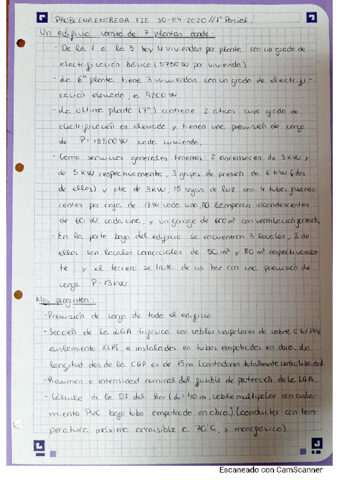 PROBLEMA ENTREGA FIE 30-04-2020 // 1º Parcial.
Un edificio consta de 7 plantas donde:
- De la 1 a la 5 hay 4 viviendas por planta con un grado de
electrificación básica (5750 W por vivienda)
- La 6ª planta tiene 3 viviendas con un grado de electrifi-
cación elevado, a 9200 W.
- La última planta (7ª) contiene 2 áticos cuyo grado de
electrificación es elevado y tienen una previsión de carga
de P = 13500 W cada vivienda.
- Como servicios generales tenemos: 2 ascensores de 3 KW y
de 5 KW respectivamente, 3 grupos de presión de 6 KW (dos
de ellos) y otro de 3 KW, 15 cajas de luz con 4 tubos fluores-
centes por caja de 18 W cada uno, 20 lámparas incandescentes
de 60 W cada una, y un garaje de 600 m² con ventilación forzada.
- En la parte baja del edificio se encuentran 3 locales, 2 de
ellos son locales comerciales de 50 m² y 80 m² respectivamen-
te, y el tercero se trata de un bar con una previsión de
carga P = 13 KW.
Nos preguntan:
- Previsión de carga de todo el edificio
- Sección de la LGA trifásica con cables unipolares de cobre 0,6/1 KV
aislamiento XLPE e instalados en tubos empotrados en obra. La
longitud de la CGP es de 15 m (contadores totalmente centralizados)
- Resumen e intensidad nominal del fusible de protección de la LGA.
- Cálculo de la DI del Bar (L = 40 m, cable multipolar con aisla-
miento PVC bajo tubo empotrado en obra) (conductor con tem-
peratura máxima admisible a 70°C, y monofásico)
Escaneado con CamScanner